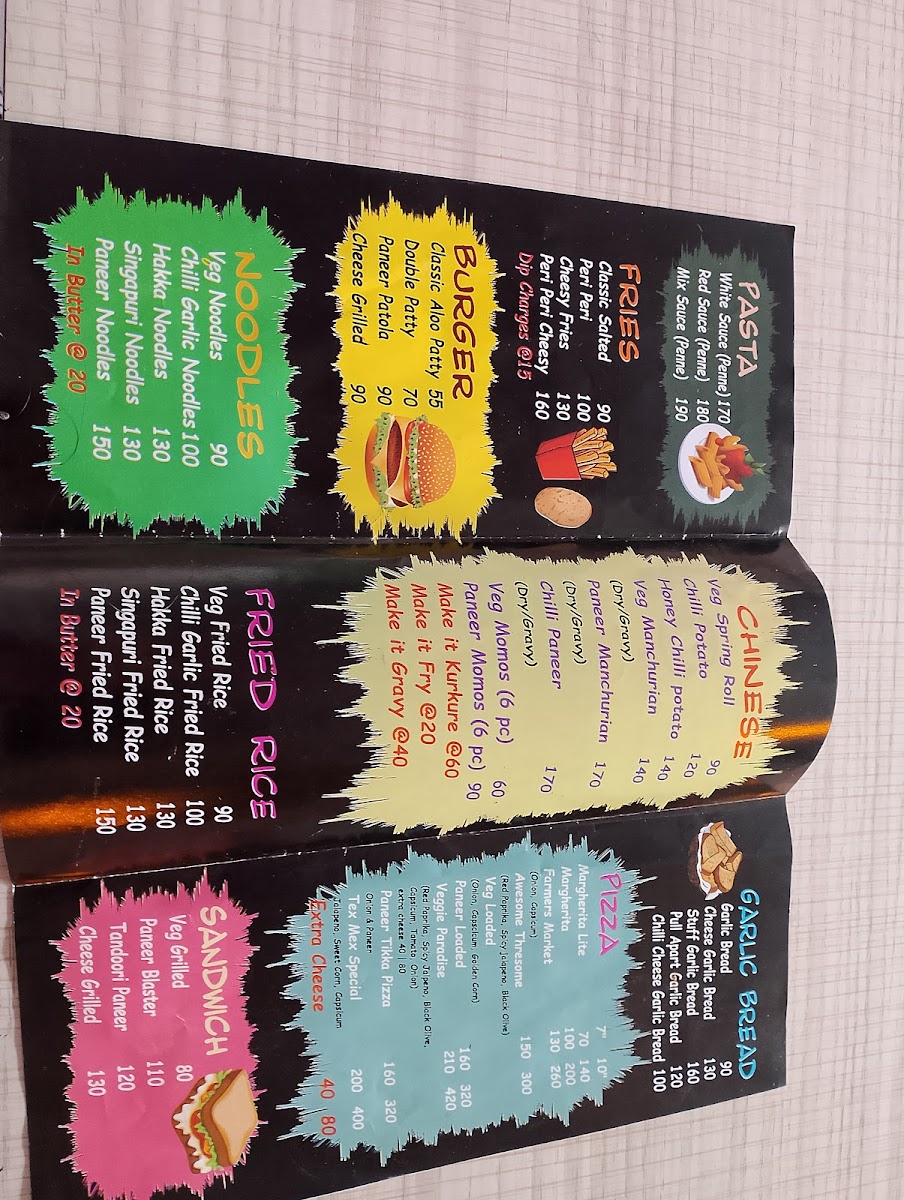 PASTA
White Sauce (Penne) 170
Red Sauce (Penne) 180
Mix Sauce (Penne) 190
FRIES
Classic Salted 90
Peri Peri 100
Cheesy Fries 130
Peri Peri Cheesy 160
Dip Charges @15
BURGER
Classic Aloo Patty 55
Double Patty 70
Paneer Patola 90
Cheese Grilled 90
NOODLES
Veg Noodles 90
Chilli Garlic Noodles 100
Hakka Noodles 130
Singapuri Noodles 130
Paneer Noodles 150
In Butter @ 20
CHINESE
Veg Spring Roll 90
Chilli Potato 120
Honey Chilli potato 140
Veg Manchurian 140
(Dry/Gravy)
Paneer Manchurian 170
(Dry/Gravy)
Chilli Paneer 170
(Dry/Gravy)
Veg Momos (6 pc) 60
Paneer Momos (6 pc) 90
Make it Kurkure @60
Make it Fry @20
Make it Gravy @40
FRIED RICE
Veg Fried Rice 90
Chilli Garlic Fried Rice 100
Hakka Fried Rice 130
Singapuri Fried Rice 130
Paneer Fried Rice 150
In Butter @ 20
GARLIC BREAD
Garlic Bread 90
Cheese Garlic Bread 130
Stuff Garlic Bread 160
Pull Apart Garlic Bread 120
Chilli Cheese Garlic Bread 100
PIZZA
7" 10"
Margherita Lite 70 140
Margherita 100 200
Farmers Market 130 260
(Onion, Capsicum)
Awesome Threesome 150 300
(Red Paprika, Spicy Jalapeno, Black Olive)
Veg Loaded
(Onion, Capsicum, Golden Corn)
Paneer Loaded 160 320
Veggie Paradise 210 420
(Red Paprika, Spicy Japeno, Black Olive,
Capsicum, Tamato, Onion)
extra cheese 40 | 80
Paneer Tikka Pizza 160 320
Onion & Paneer
Tex Mex Special 200 400
Jalapeno, Sweet Corn, Capsicum
Extra Cheese 40 80
SANDWICH
Veg Grilled 80
Paneer Blaster 110
Tandoori Paneer 120
Cheese Grilled 130